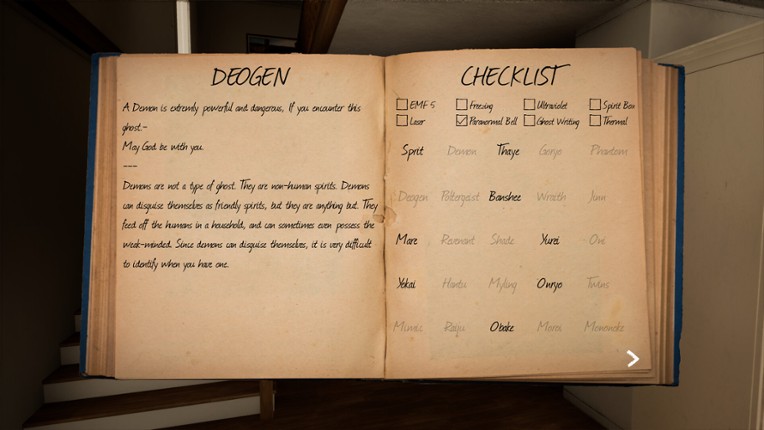 DEOGEN
A Demon is extremely powerful and dangerous, If you encounter this
ghost:-
May God be with you.
---
Demons are not a type of ghost. They are non-human spirits. Demons
can disguise themselves as friendly spirits, but they are anything but. They
feed off the humans in a household, and can sometimes even possess the
weak-minded. Since demons can disguise themselves, it is very difficult
to identify when you have one.
CHECKLIST
EMF 5 Freezing Ultraviolet Spirit Box
Laser Paranormal Bell Ghost Writing Thermal
Sprit Demon Thaye Goryo Phantom
Deogen Poltergeist Banshee Wraith Jinn
Mare Revenant Shade Yurei Oni
Yokai Hantu Myling Onryo Twins
Mimic Raiju Obake Moroi